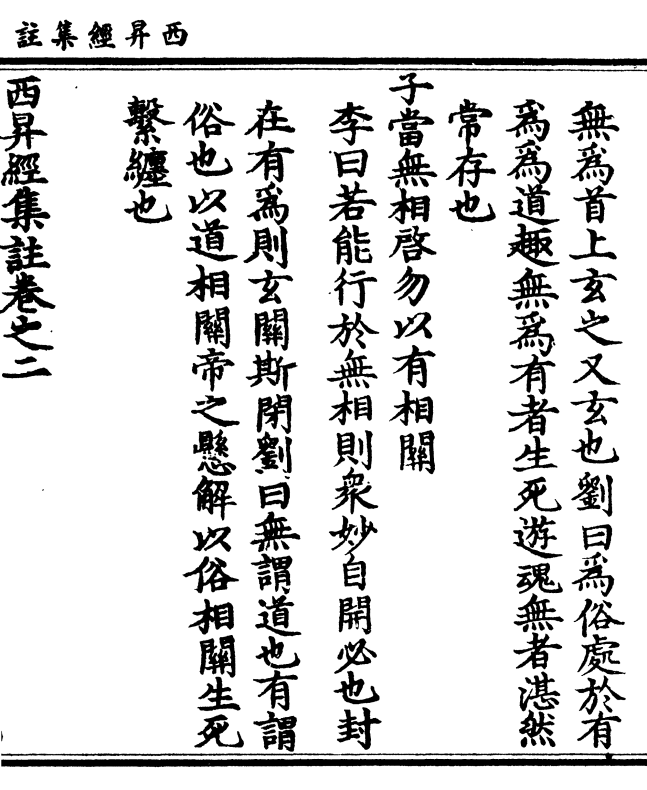 西昇經集註
無爲首上玄之又玄也劉曰爲俗處於有
爲爲道趣無爲有者生死遊魂無者湛然
常存也
子當無相啓勿以有相關
李曰若能行於無相則衆妙自開必也封
在有爲則玄關斯閉劉曰無謂道也有謂
俗也以道相關帝之懸解以俗相關生死
繫纏也
西昇經集註卷之二